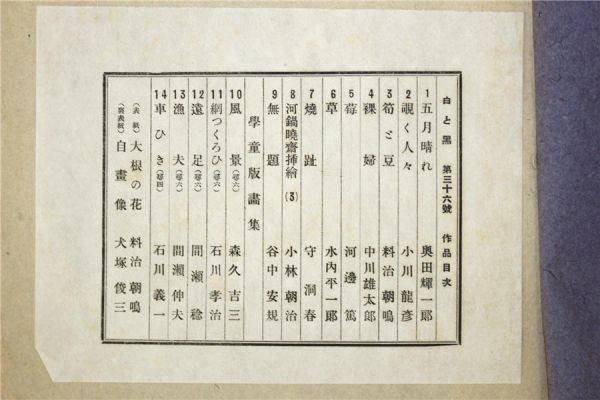 白と黒 第三十六號 作品目次
1 五月晴れ 奥田輝一郎
2 覗く人々 小川龍彦
3 筍と豆 料治朝鳴
4 裸婦 中川雄太郎
5 莓 河邊篤
6 草 水內平一郎
7 燒趾 守洞春
8 河鍋曉齋挿繪(3) 小林朝治
9 無題 谷中安規
學童版畫集
10 風景(尋六) 森久吉三
11 網つくろひ(尋六) 石川孝治
12 遠足(尋六) 間瀬稔
13 漁夫(尋六) 間瀬伸夫
14 車ひき(尋四) 石川義一
(表紙) 大根の花 料治朝鳴
(裏表紙) 自畫像 犬塚俊三